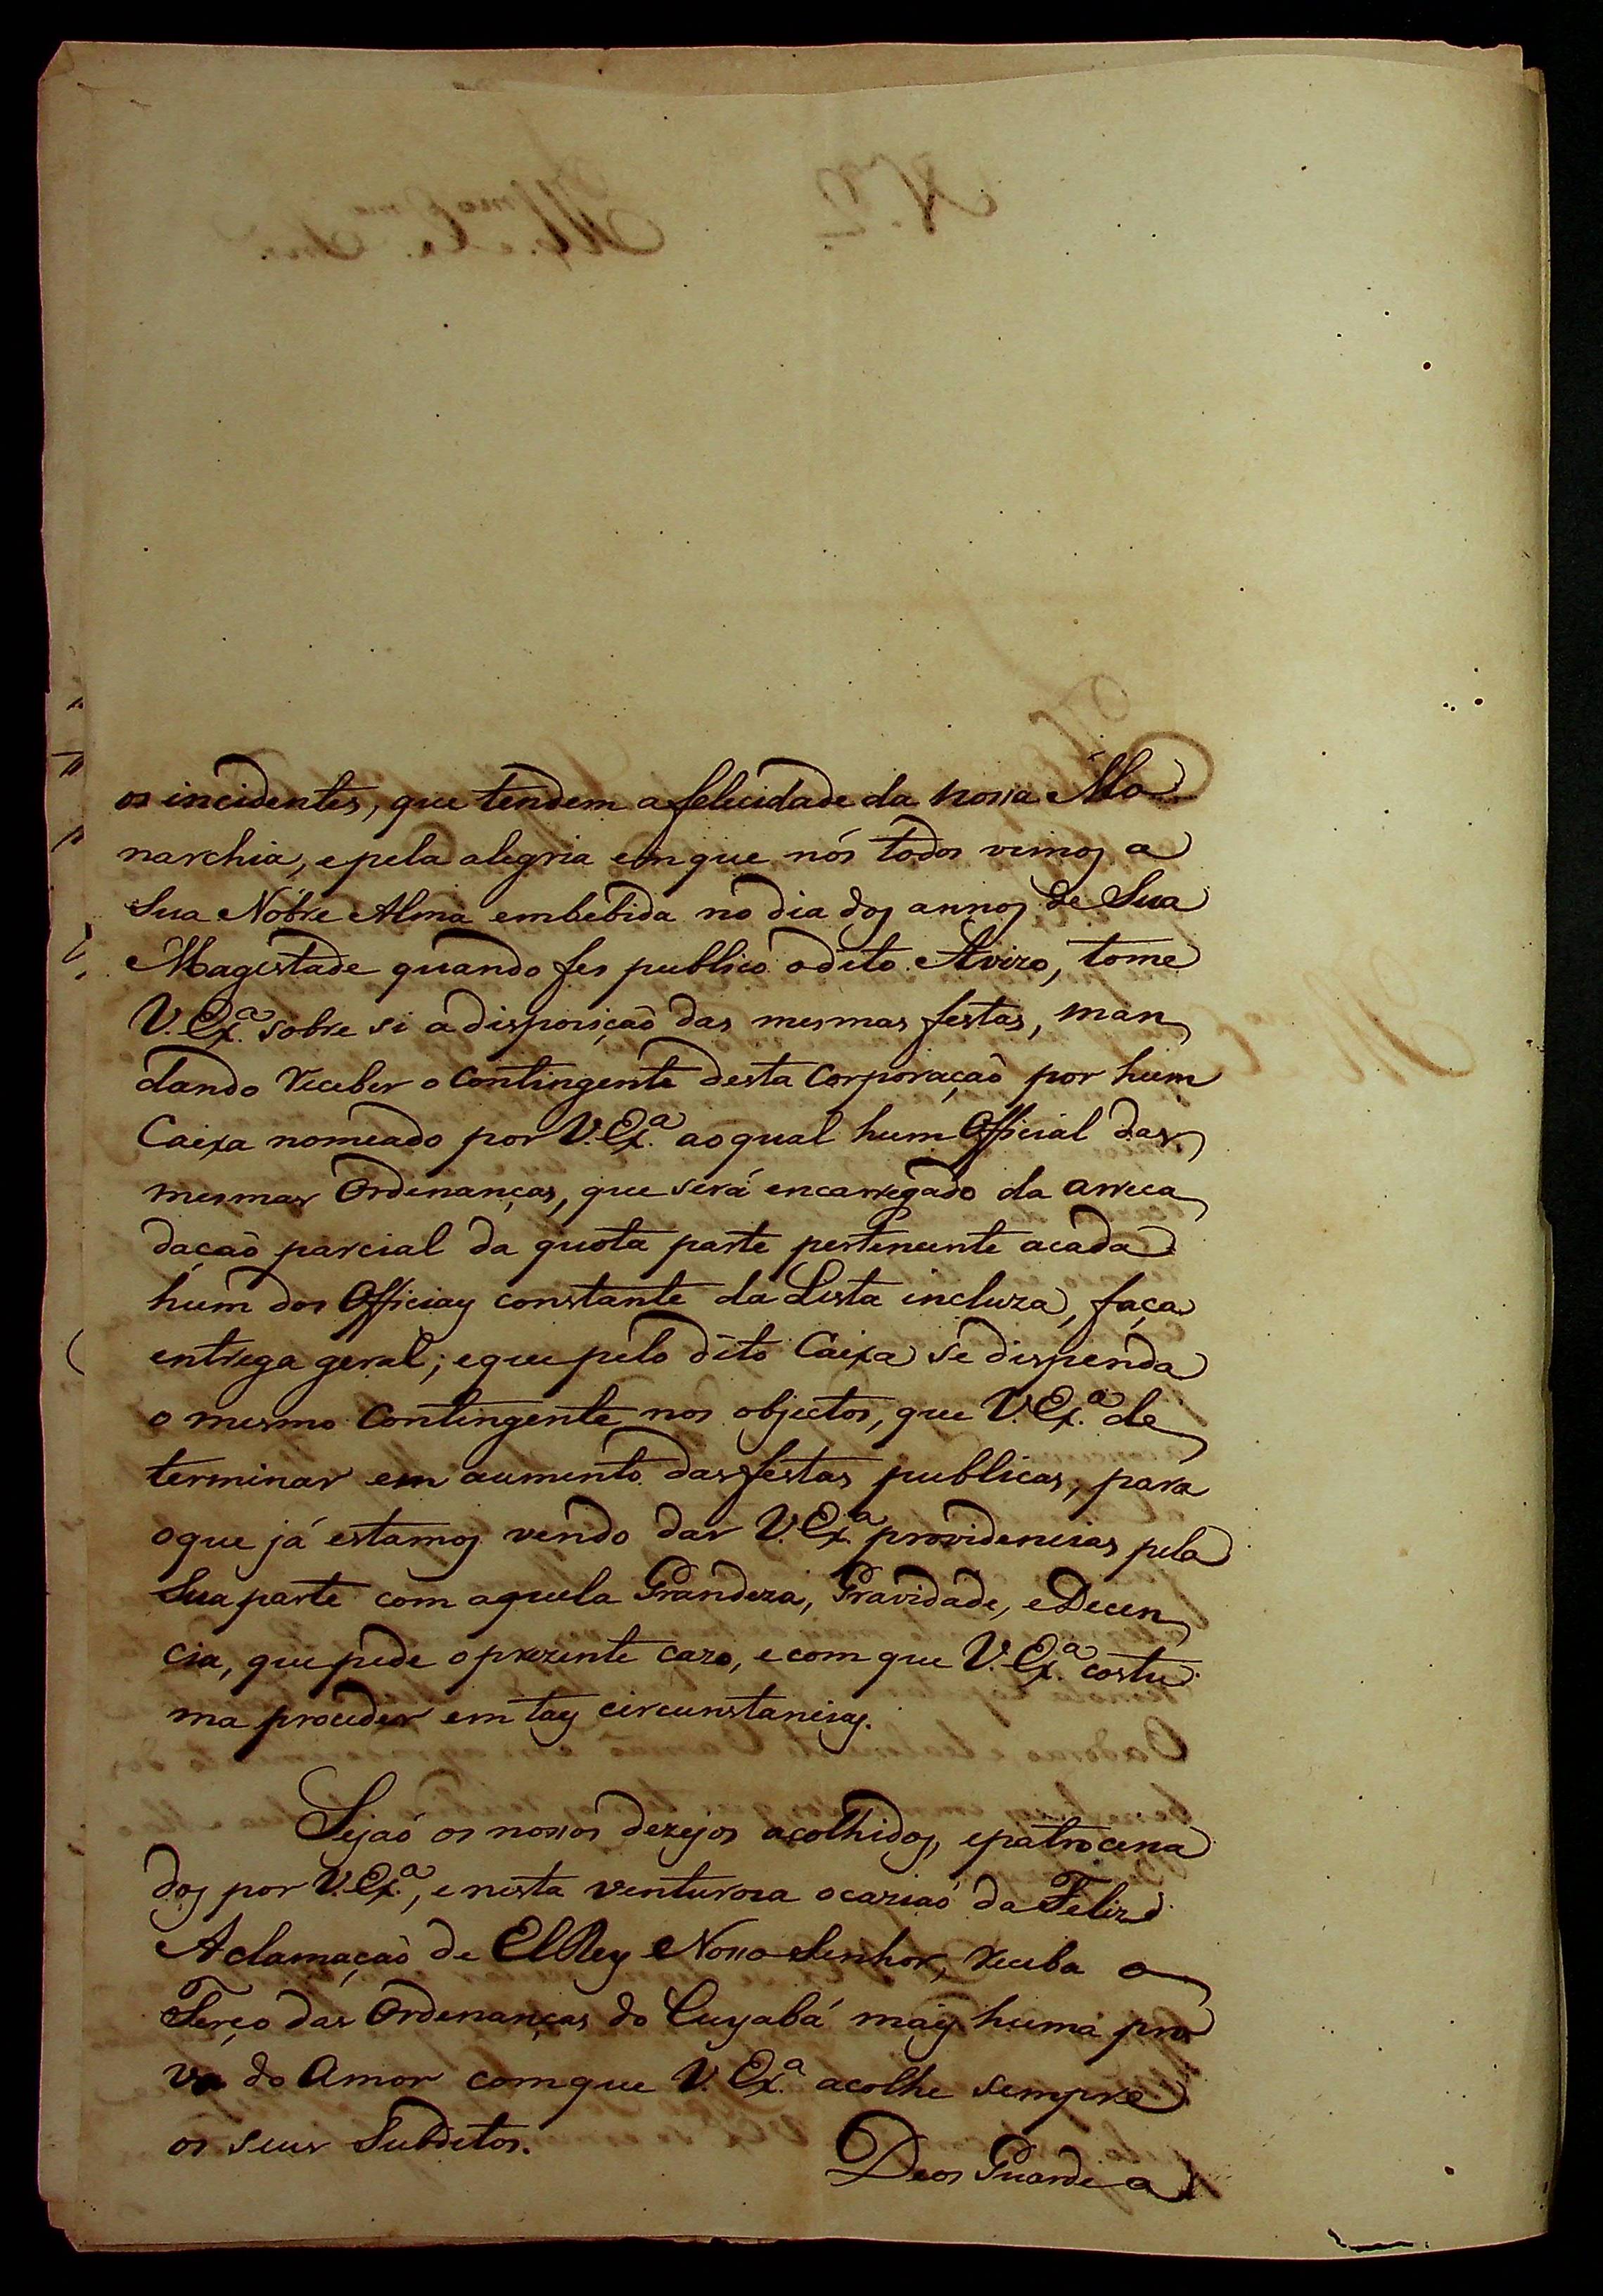 os incidentes, que tendem a felicidade da nossa Mo
narchia, e pela alegria em que nós todos vimos a
Sua Nóbre Alma embebida no dia dos annos de Sua
Magestade quando fes publico o dito Avizo, tome
V. Ex.ª sobre si a disposição das mesmas festas, man
dando receber o Contingente desta Corporação por hum
Caixa nomeado por V. Ex.ª ao qual hum Official das
mesmas Ordenanças, que será encarregado da arreca
dação parcial da quota parte pertencente a cada
hum dos Officiaes constante da Lista incluza, faça
entrega geral; e que pelo dito Caixa se dispenda
o mesmo Contingente nos objectos, que V. Ex.ª de
terminar em aumento das festas publicas, para
o que já estamos vendo dar V. Ex.ª providencias pela
Sua parte com aquela Grandeza, Gravidade, e Decen
cia, que pede o prezente cazo, e com que V. Ex.ª costu
ma proceder em taes circunstancias.
Sejaõ os nossos dezejos acolhidos, e patrocina
dos por V. Ex.ª, e nesta venturoza ocaziaõ da Feliz
Aclamação de ElRey Nosso Senhor, receba o
Terço das Ordenanças do Cuyabá mais huma pro
va do Amor com que V. Ex.ª acolhe sempre
os seus Subditos.
Deos Guarde a